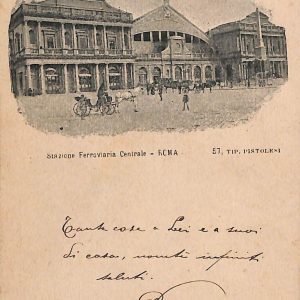 Stazione Ferroviaria Centrale - ROMA
57, TIP. PISTOLESI
Tante cose a Lei e a suoi
di casa, novelli infiniti
saluti.